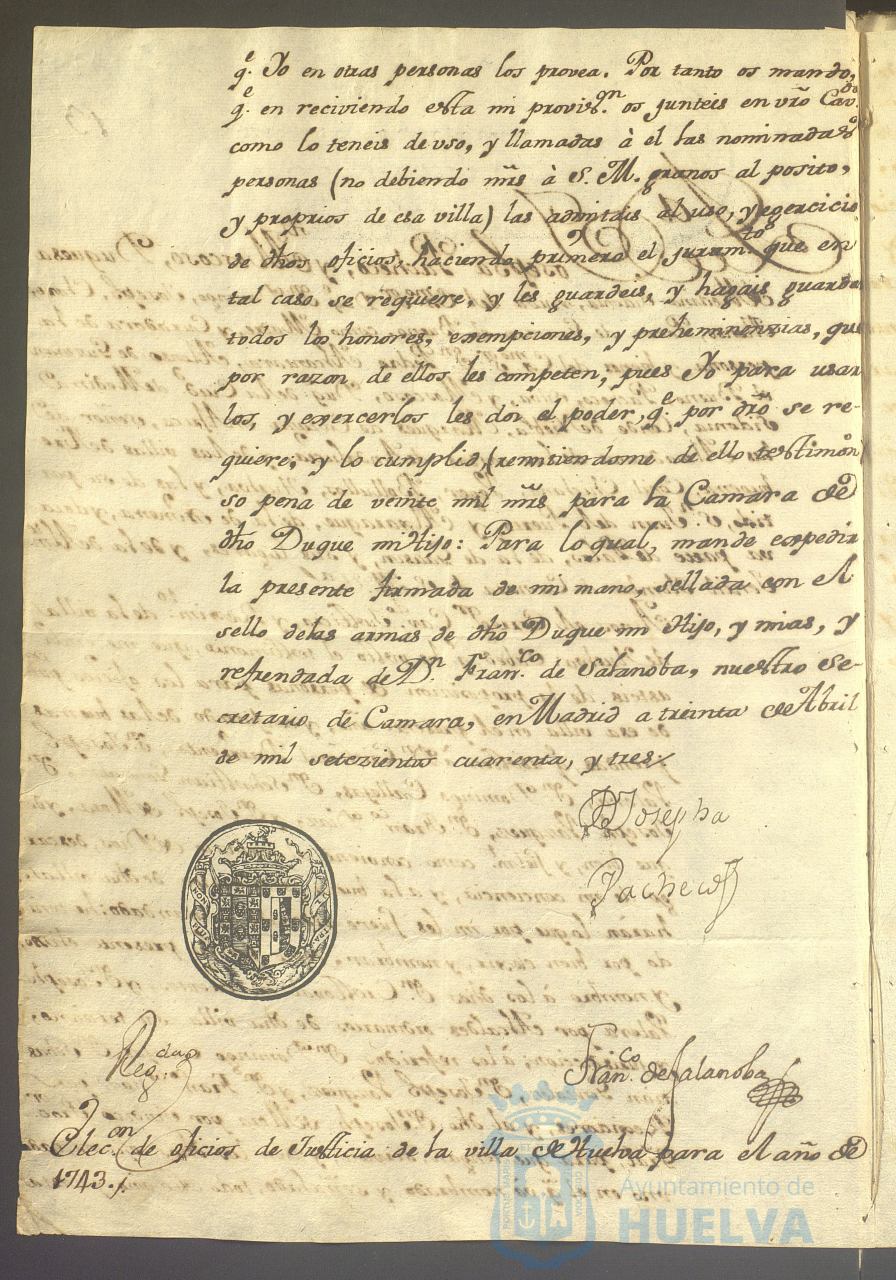 q.e Yo en otras personas los provea. Por tanto os mando,
q.e en reciviendo esta mi provis.on os junteis en vro Cav.do
como lo teneis de uso, y llamadas à el las nominadas
personas (no debiendo mrs à S. M. granos al posito,
y proprios de esa villa) las admitais al uso, y egercicio
de dhos oficios, haciendo primero el juram.to que en
tal caso se requiere, y les guardeis, y hagais guardar
todos los honores, exempciones, y preheminenzias, que
por razon de ellos les competen, pues Yo para usar
los, y exercerlos les doi el poder, q.e por dro se re-
quiere, y lo cumplid, (remitiendome de ello testimon.o)
so pena de veinte mil mrs para la Camara de
dho Duque mi Hijo: Para lo qual, mande expedir
la presente firmada de mi mano, sellada con el
sello de las armas de dho Duque mi Hijo, y mias, y
refrendada de D.n Fran.co de Salanoba, nuestro Se-
cretario de Camara, en Madrid a treinta de Abril
de mil setezientos cuarenta, y tres
Josepha
Pacheco
Reg.da
Fran.co de Salanoba
Elec.on de oficios de Justicia de la villa de Huelva para el año de
1743.
Ayuntamiento de
HUELVA